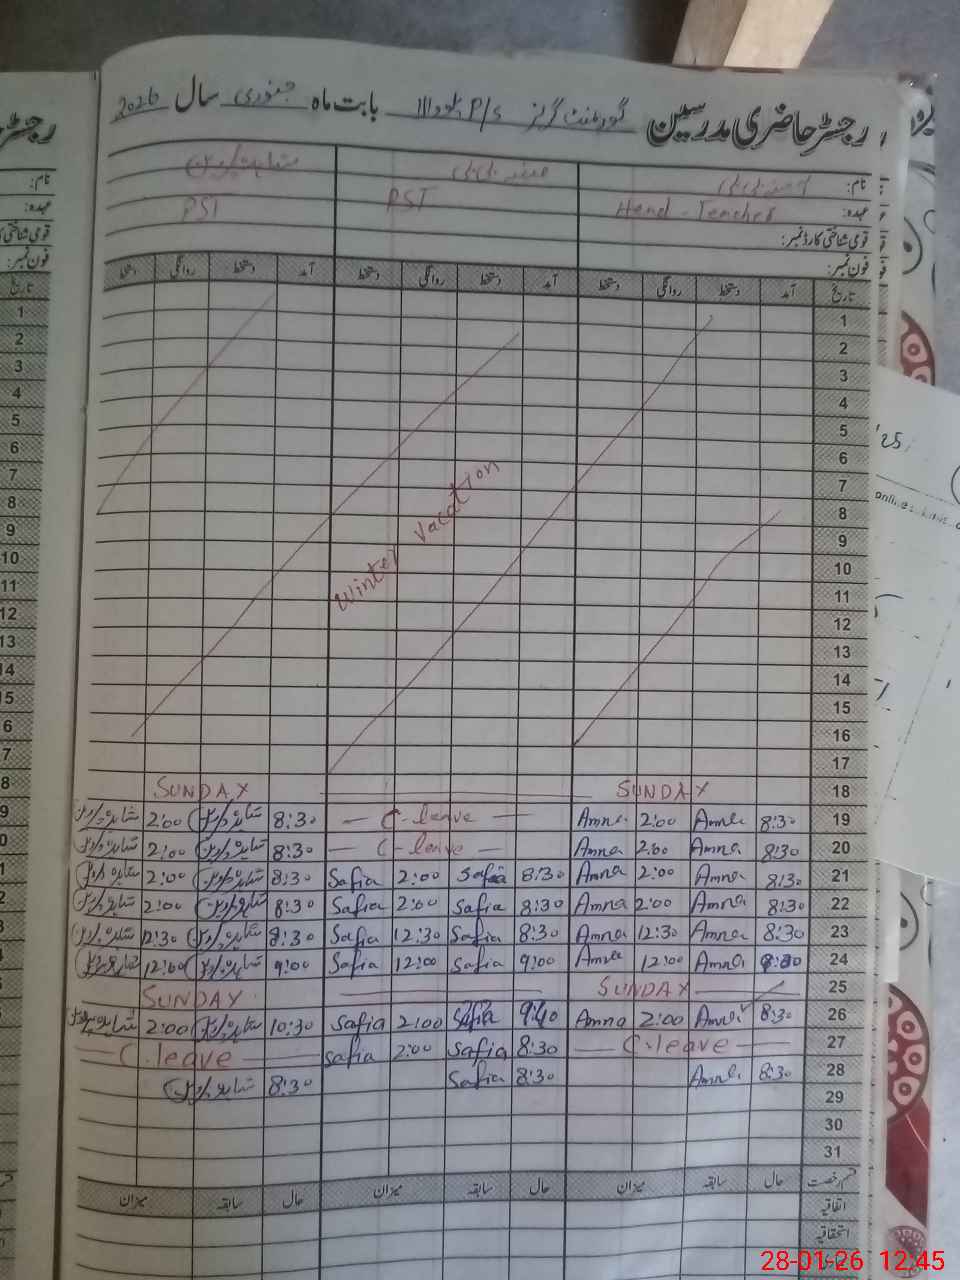 رجسٹر حاضری مدرسین گورنمنٹ گرلز P/S بابت ماہ جنوری سال 2026
نام:
عہدہ: Head-Teacher PST PST
قومی شناختی کارڈ نمبر:
فون نمبر:
تاریخ آمد دستخط روانگی دستخط آمد دستخط روانگی دستخط آمد دستخط روانگی دستخط
1
2
3
4
5
6
7
8
9
10
11
12
13
14
15
16
17
Winter vacation
18 SUNDAY SUNDAY
19 8:30 Amna 2:00 Amna C-leave 8:30 2:00
20 8:30 Amna 2:00 Amna C-leave 8:30 2:00
21 8:30 Amna 2:00 Amna 8:30 Safia 2:00 Safia 8:30 2:00
22 8:30 Amna 2:00 Amna 8:30 Safia 2:00 Safia 8:30 2:00
23 8:30 Amna 12:30 Amna 8:30 Safia 12:30 Safia 8:30 12:30
24 Amna 12:00 Amna 9:00 Safia 12:00 Safia 9:00 12:00
25 SUNDAY SUNDAY
26 8:30 Amna 2:00 Amna 9:40 Safia 2:00 Safia 10:30 2:00
27 C.leave 8:30 Safia 2:00 Safia C.leave
28 8:30 Amna 8:30 Safia 8:30
29
30
31
قسم رخصت حال سابقہ میزان حال سابقہ میزان حال سابقہ میزان
اتفاقیہ
استحقاقیہ
28-01-26 12:45